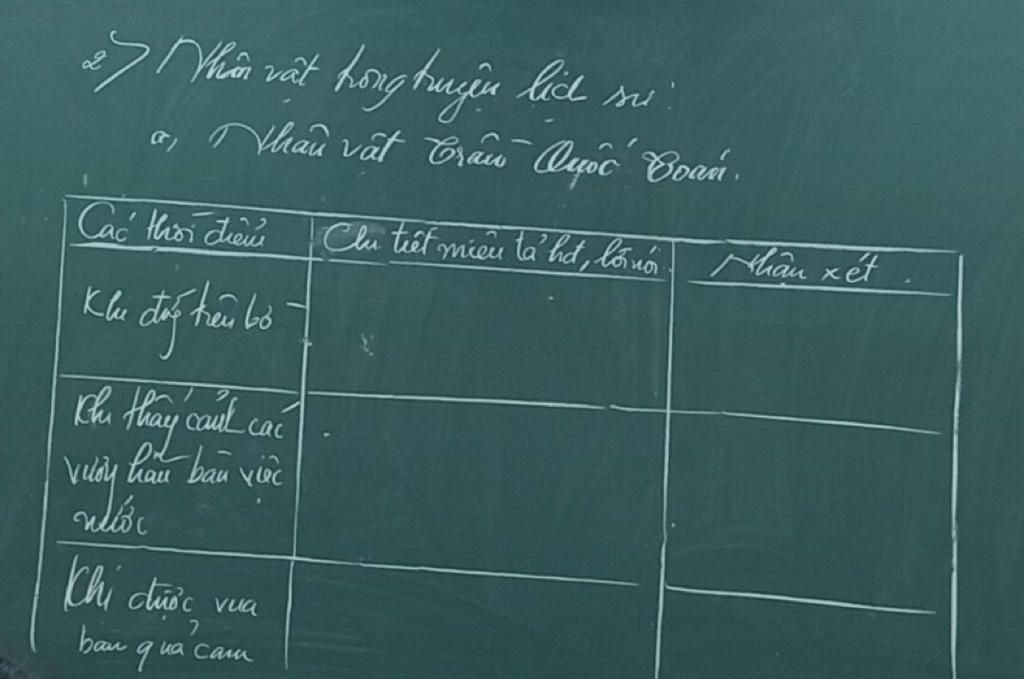 2) Nhân vật trong truyện lịch sử:
a, Nhân vật Trần Quốc Toản.
Các thời điểm
Chi tiết miêu tả hđ, lời nói
Nhận xét.
Khi đứng trên bờ
Khi thấy cảnh các
vương hầu bàn việc
nước
Khi được vua
ban quả cam